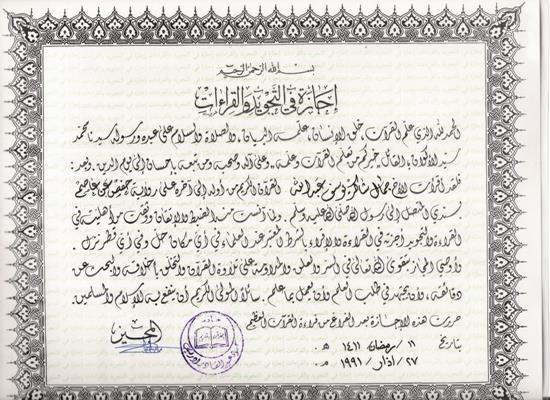 بسم الله الرحمن الرحيم
إجازة في التجويد والقراءات
الحمد لله الذي علم القرآن خلق الإنسان، علمه البيان، والصلاة والسلام على عبده ورسوله سيدنا محمد
سيد الأكوان، القائل خيركم من تعلم القرآن وعلمه، وعلى آله وصحبه ومن تبعه بإحسان إلى يوم الدين. وبعد:
فلقد أقرأت الأخ جمال شاكر يوسف عبد الله القرآن الكريم من أوله إلى آخره على رواية حفص عن عاصم
بسندي المتصل إلى رسول الله صلى الله عليه وسلم. ولما آنست منه الضبط والإتقان ووثقت من أهليته في
القراءة والتجويد أجزته في القراءة والإقراء بالشرط المعتبر عند العلماء في أي مكان حل وفي أي قطر نزل.
وأوصي المجاز بتقوى الله تعالى في السر والعلن، والمداومة على تلاوة القرآن والتخلق بأخلاقه والبحث عن
دقائقه، وأن يجتهد في طلب العلم وأن يعمل بما علم. سائلا المولى الكريم أن ينفع به الإسلام والمسلمين.
حررت هذه الإجازة بعد الفراغ من قراءة القرآن العظيم
بتاريخ ١١ رمضان ١٤١١ هـ
٢٧ آذار ١٩٩١ م.
المجيز